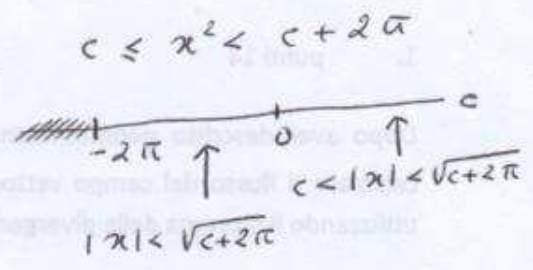 c ≤ x² < c + 2π
-2π 0 c
c < |x| < √c+2π
|x| < √c+2π